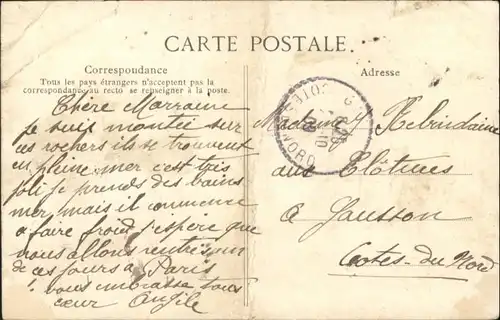 CARTE POSTALE.
Correspondance
Tous les pays étrangers n'acceptent pas la
correspondance au recto se renseigner à la poste.
Chère Marraine
je suis montée sur
ces rochers ils se trouvent
en pleine mer c'est très
joli je prends des bains
mer mais il commence
a faire froid j'espère que
nous allons rentrés un
de ces jours a Paris
vous embrasse tous
cœur Angèle
Adresse
Madame
aux Clôtures
a Sausson
Cotes-du Nord
NORD